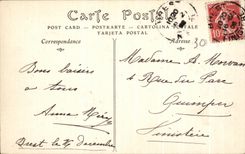 Carte Postale
POST CARD — POSTKARTE — CARTOLINA POSTALE
TARJETA POSTAL
Correspondance
Adresse
30
10
Bons baisers
à tous
Anna
Brest le décembre
Madame A. Morvan
4 Rue du Parc
Quimper
Finistère